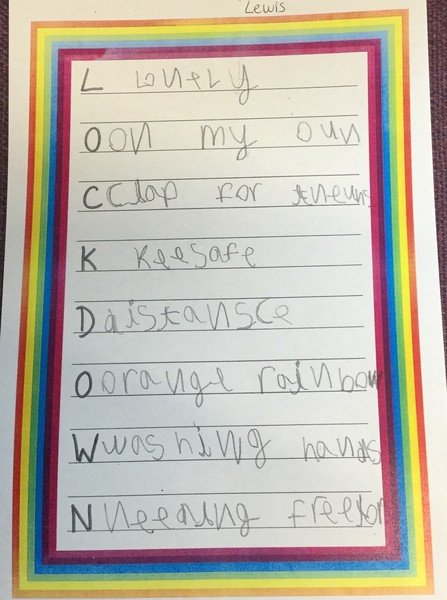 Lewis
L Lonely
O on my oun
C Clap for
K Keesafe
D distansce
O orange rainbow
W washing hands
N needing freedom